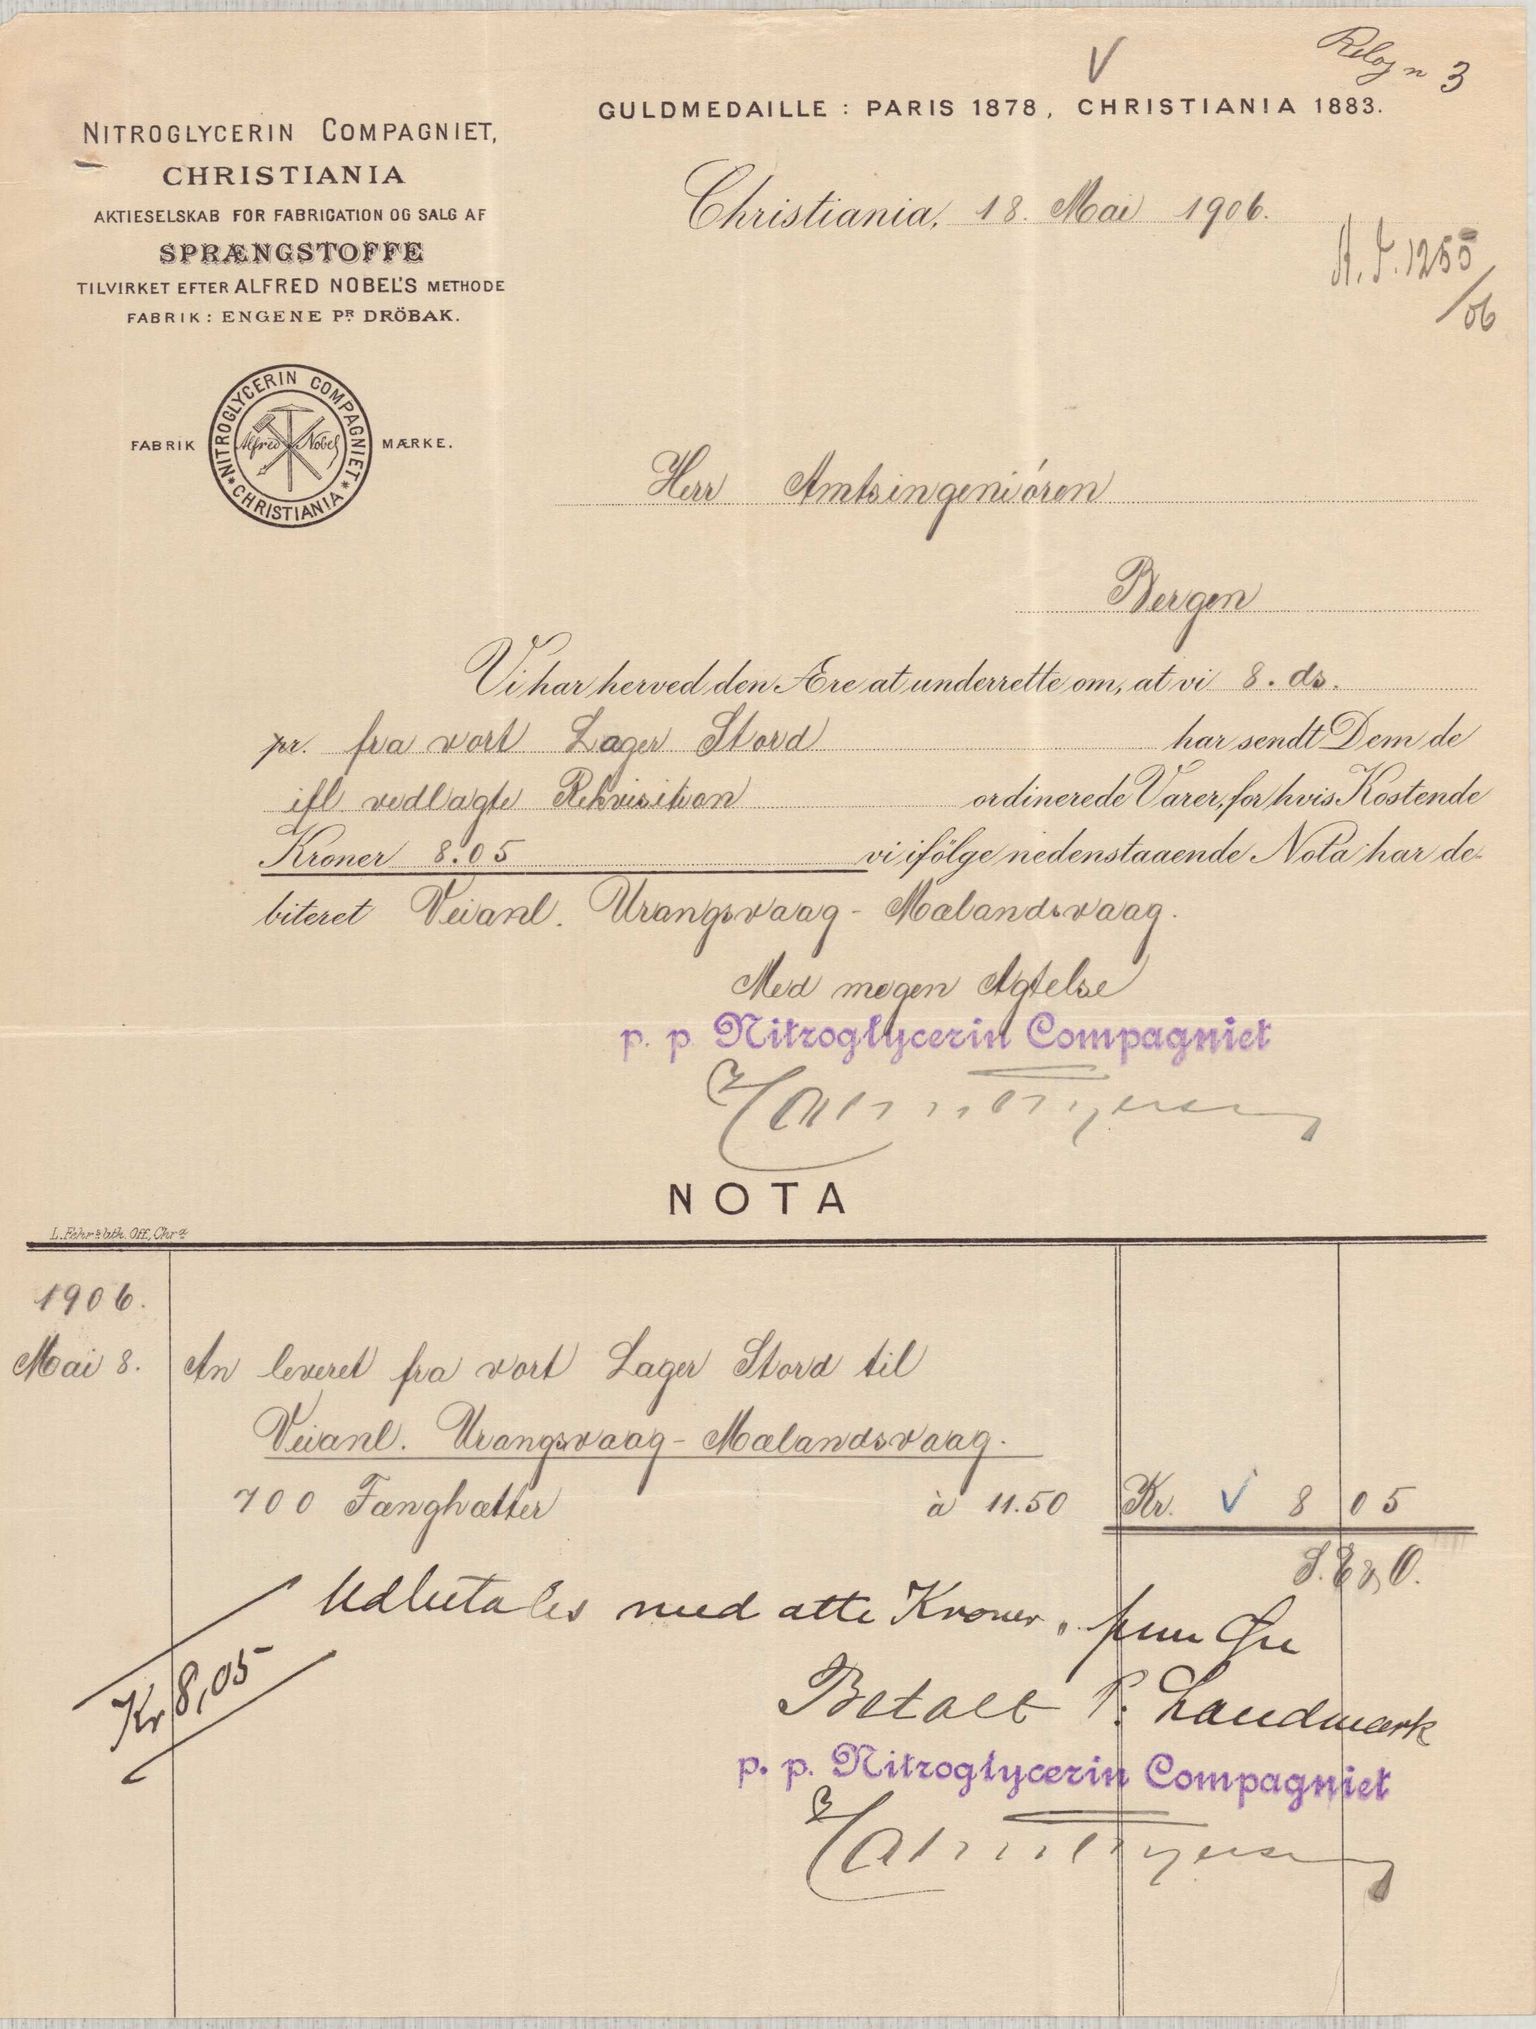 Bilag n 3
GULDMEDAILLE: PARIS 1878, CHRISTIANIA 1883.
NITROGLYCERIN COMPAGNIET,
CHRISTIANIA
AKTIESELSKAB FOR FABRICATION OG SALG AF
SPRÆNGSTOFFE
TILVIRKET EFTER ALFRED NOBEL'S METHODE
FABRIK: ENGENE PR DRÖBAK.
FABRIK MÆRKE.
NITROGLYCERIN COMPAGNIET * CHRISTIANIA *
Alfred Nobel
Christiania, 18. Mai 1906.
A. J. 1255/06
Herr Amtsingeniören
Bergen
Vi har herved den Ære at underrette om, at vi 8. ds.
pr. fra vort Lager Stord har sendt Dem de
ifl vedlagte Rekvisition ordinerede Varer, for hvis Kostende
Kroner 8.05 vi ifölge nedenstaaende Nota har de-
biteret Veianl. Urangsvaag - Mælandsvaag.
Med megen Agtelse
p. p. Nitroglycerin Compagniet
NOTA
L. Fehr's lith. Off, Chra
1906.
Mai 8. An leveret fra vort Lager Stord til
Veianl. Urangsvaag - Mælandsvaag.
700 Fænghætter à 11.50 Kr. 8 05
S. E. & O.
Udbetales med otte Kroner, fem Øre
Kr 8,05
Betalt P. Landmark
p. p. Nitroglycerin Compagniet